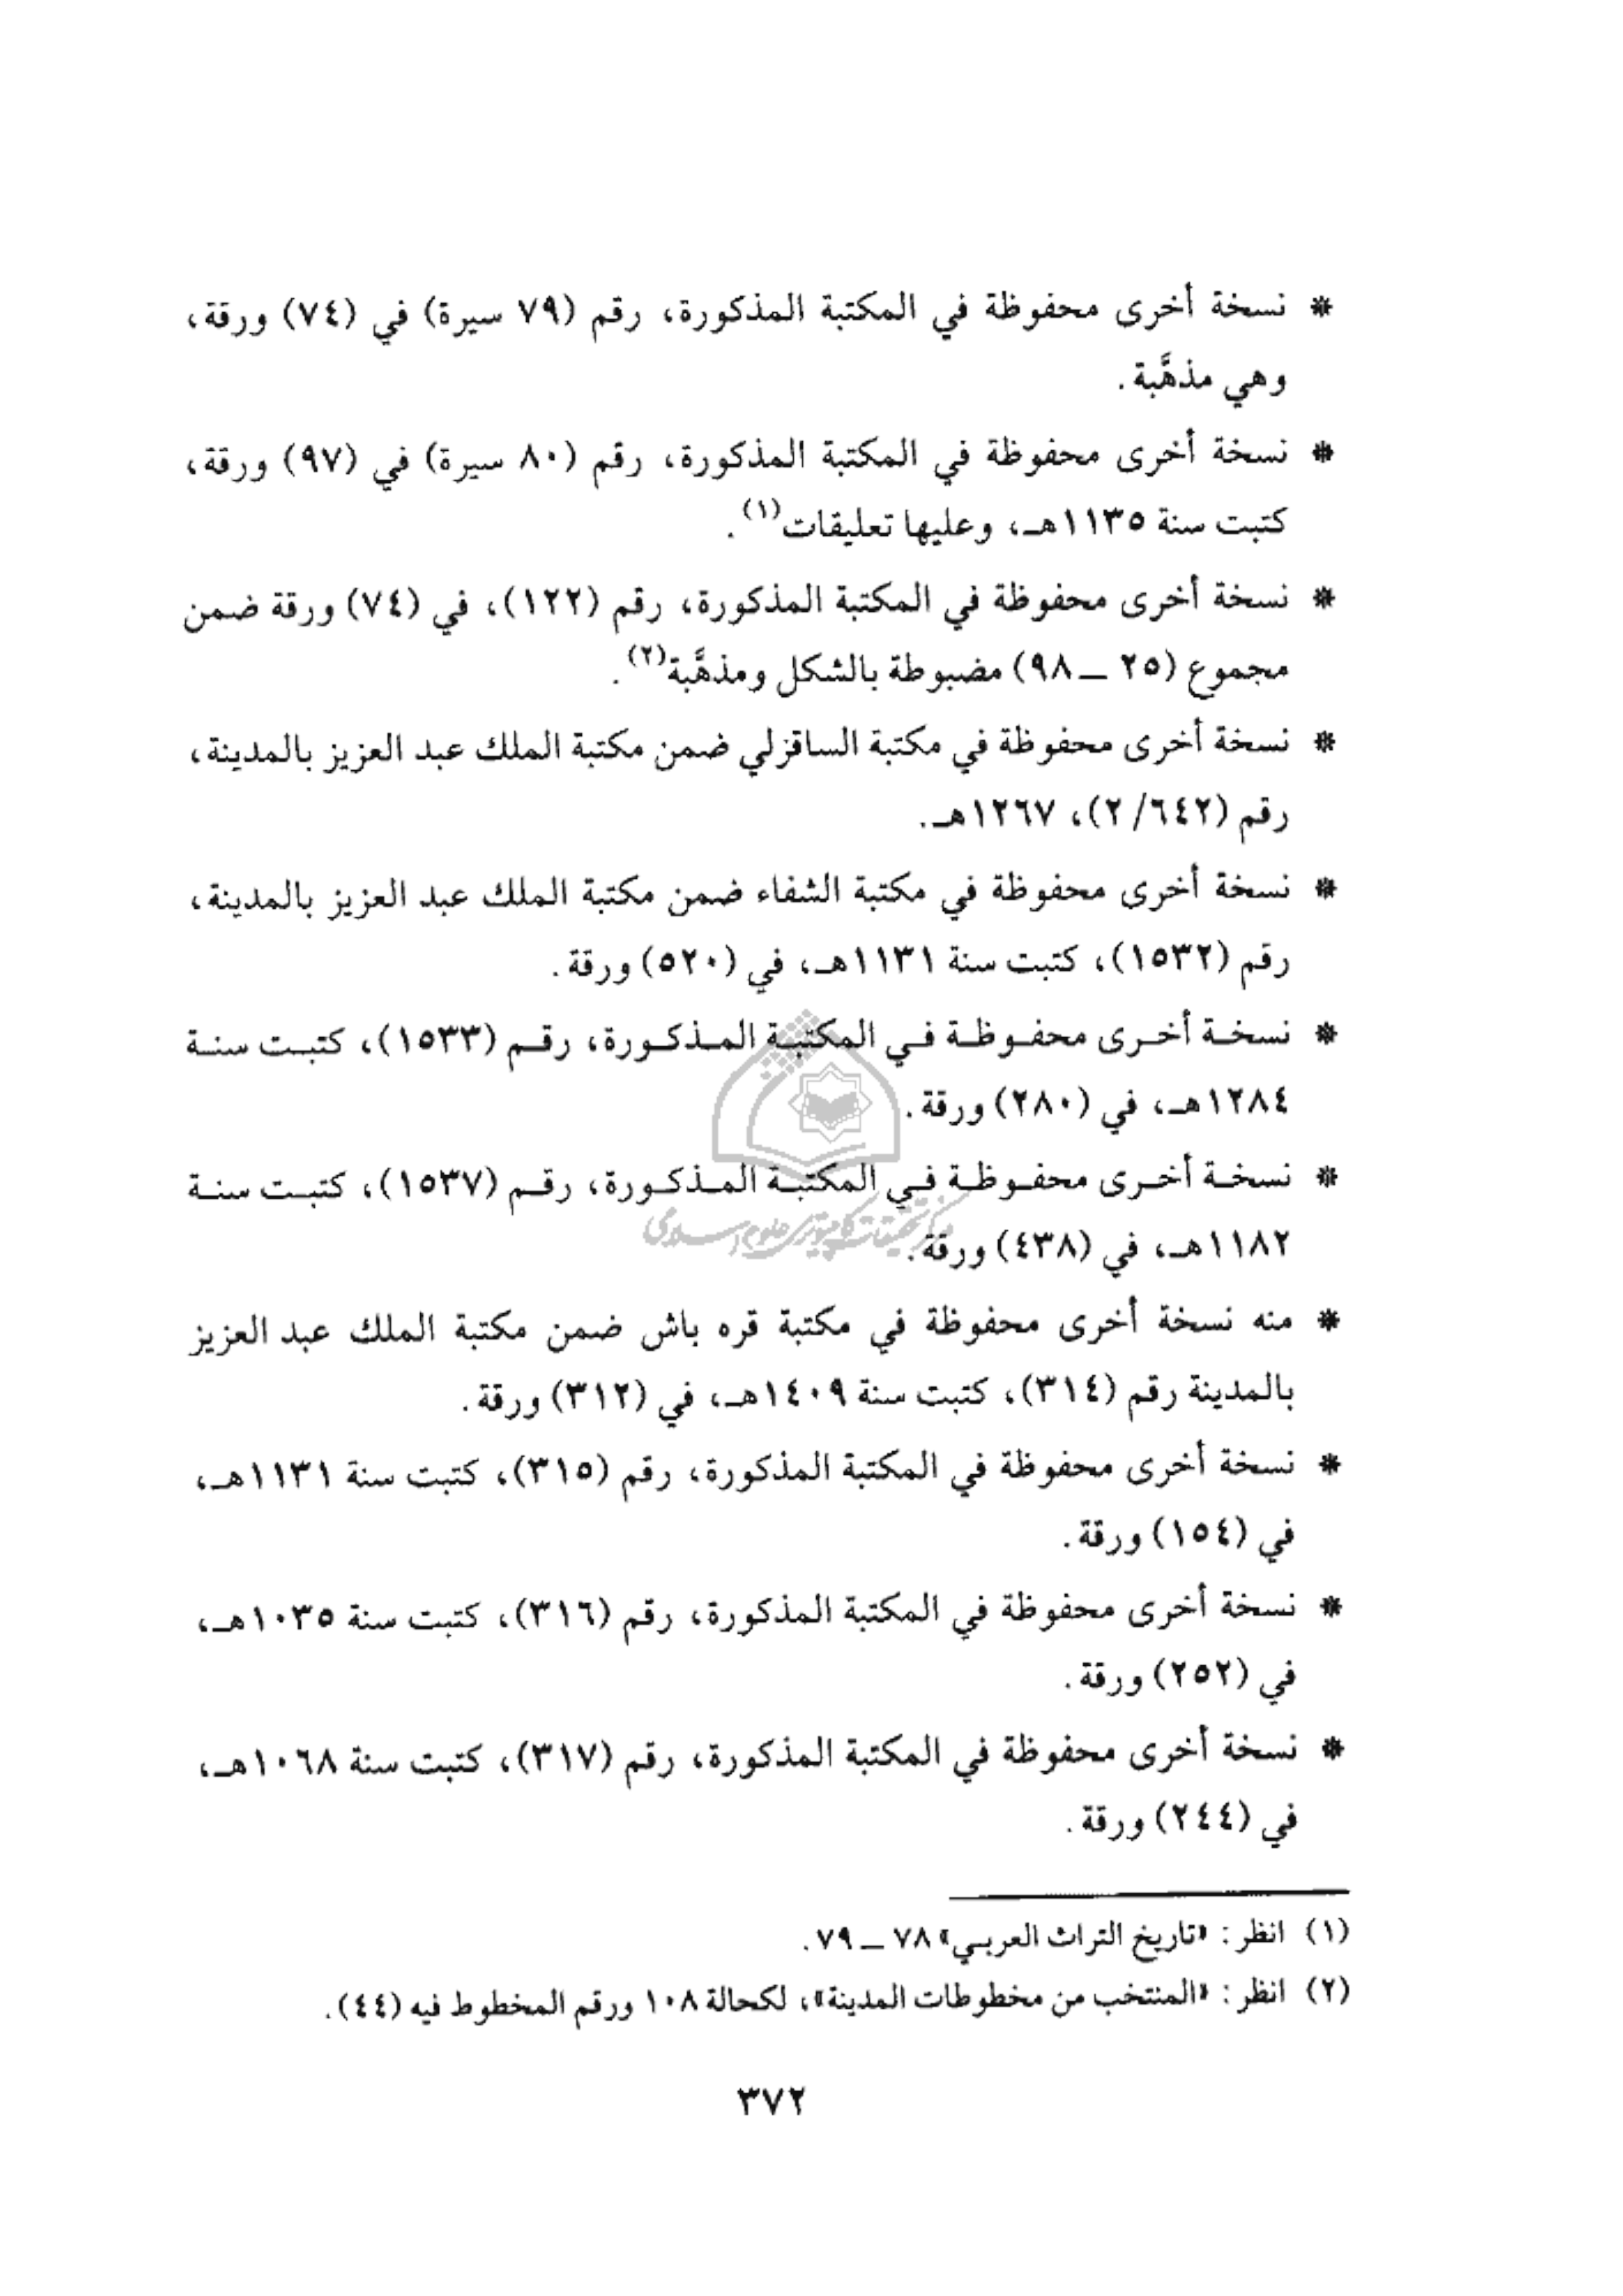 * نسخة أخرى محفوظة في المكتبة المذكورة، رقم (٧٩ سيرة) في (٧٤) ورقة،
وهي مذهَّبة.
* نسخة أخرى محفوظة في المكتبة المذكورة، رقم (٨٠ سيرة) في (٩٧) ورقة،
كتبت سنة ١١٣٥هـ، وعليها تعليقات(١).
* نسخة أخرى محفوظة في المكتبة المذكورة، رقم (١٢٢)، في (٧٤) ورقة ضمن
مجموع (٢٥ ــ ٩٨) مضبوطة بالشكل ومذهَّبة(٢).
* نسخة أخرى محفوظة في مكتبة الساقزلي ضمن مكتبة الملك عبد العزيز بالمدينة،
رقم (٢/٦٤٢)، ١٢٦٧هـ.
* نسخة أخرى محفوظة في مكتبة الشفاء ضمن مكتبة الملك عبد العزيز بالمدينة،
رقم (١٥٣٢)، كتبت سنة ١١٣١هـ، في (٥٢٠) ورقة.
* نسخة أخرى محفوظة في المكتبة المذكورة، رقم (١٥٣٣)، كتبت سنة
١٢٨٤هـ، في (٢٨٠) ورقة.
* نسخة أخرى محفوظة في المكتبة المذكورة، رقم (١٥٣٧)، كتبت سنة
مرکز تحقیقات کامپیوتری علوم اسلامی
١١٨٢هـ، في (٤٣٨) ورقة.
* منه نسخة أخرى محفوظة في مكتبة قره باش ضمن مكتبة الملك عبد العزيز
بالمدينة رقم (٣١٤)، كتبت سنة ١٤٠٩هـ، في (٣١٢) ورقة.
* نسخة أخرى محفوظة في المكتبة المذكورة، رقم (٣١٥)، كتبت سنة ١١٣١هـ،
في (١٥٤) ورقة.
* نسخة أخرى محفوظة في المكتبة المذكورة، رقم (٣١٦)، كتبت سنة ١٠٣٥هـ،
في (٢٥٢) ورقة.
* نسخة أخرى محفوظة في المكتبة المذكورة، رقم (٣١٧)، كتبت سنة ١٠٦٨هـ،
في (٢٤٤) ورقة.
(١) انظر: «تاريخ التراث العربـي» ٧٨ ــ ٧٩.
(٢) انظر: «المنتخب من مخطوطات المدينة»، لكحالة ١٠٨ ورقم المخطوط فيه (٤٤).
٣٧٢